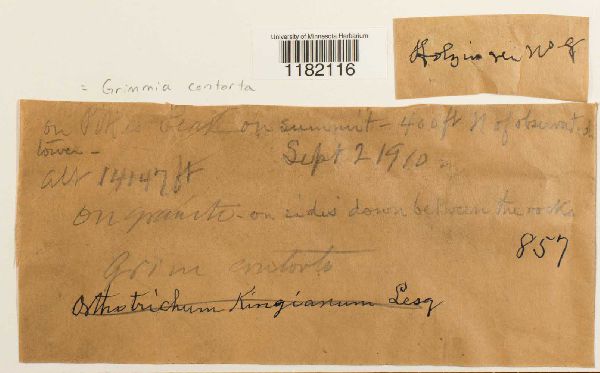 University of Minnesota Herbarium
1182116
Holzinger No 8
= Grimmia contorta
on Pikes Peak on summit - 400 ft N of observat.
tower -
Sept 2 1910
Alt 14147 ft
on granite - on sides down between the rocks
857
Grim contorta
Orthotrichum Kingianum Lesq